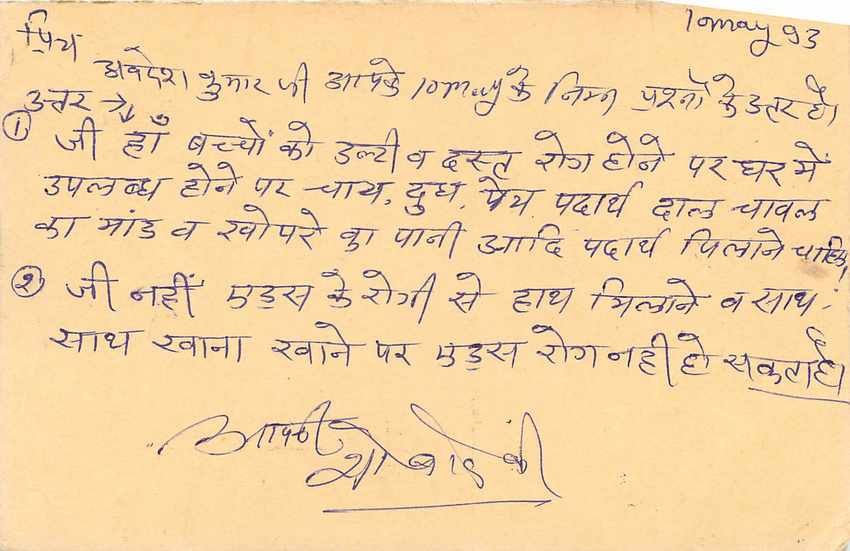 10 may 93
प्रिय
अवदेश कुमार जी आपके 10 may के निम्न प्रश्नों के उत्तर है।
उत्तर →
① जी हाँ बच्चों को उल्टी व दस्त रोग होने पर घर में
उपलब्ध होने पर चाय, दुध, पेय पदार्थ दाल चावल
का मांड व खोपरे का पानी आदि पदार्थ पिलाने चाहिए,
② जी नहीं एड्स के रोगी से हाथ मिलाने व साथ
साथ खाना खाने पर एड्स रोग नही हो सकता है।